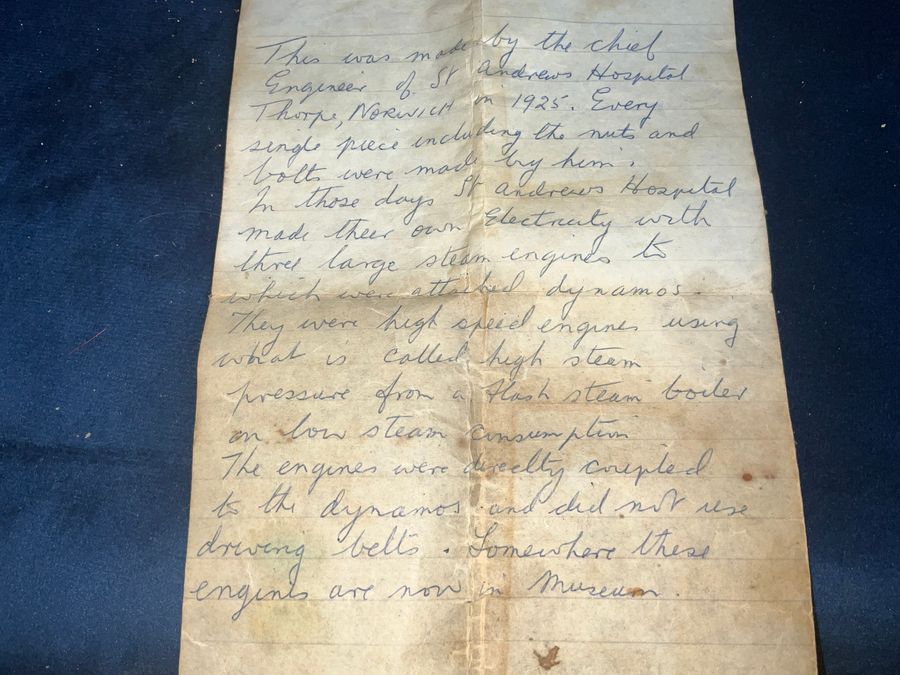 This was made by the chief
Engineer of St Andrews Hospital
Thorpe, NORWICH in 1925. Every
single piece including the nuts and
bolts were made by him.
In those days St Andrews Hospital
made their own Electricity with
three large steam engines to
which were attached dynamos.
They were high speed engines using
what is called high steam
pressure from a flash steam boiler
on low steam consumption
The engines were directly coupled
to the dynamos and did not use
driving belts. Somewhere these
engines are now in Museum.